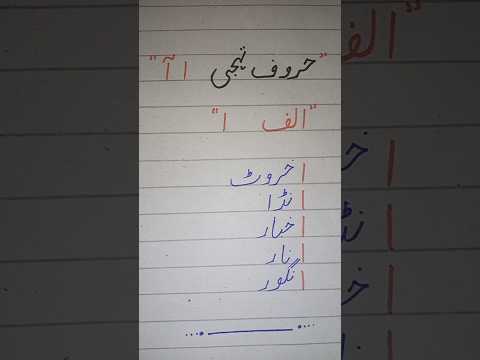 "حروف تہجی ا آ"
"الف ا"
اخروٹ
انڈا
اخبار
انار
انگور